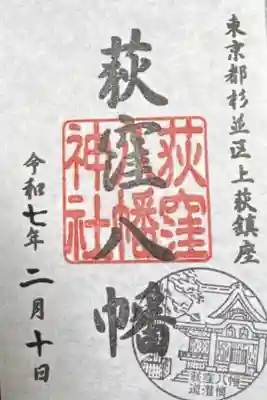 東京都杉並区上荻鎮座
荻窪八幡
荻窪八幡神社
令和七年 二月十日